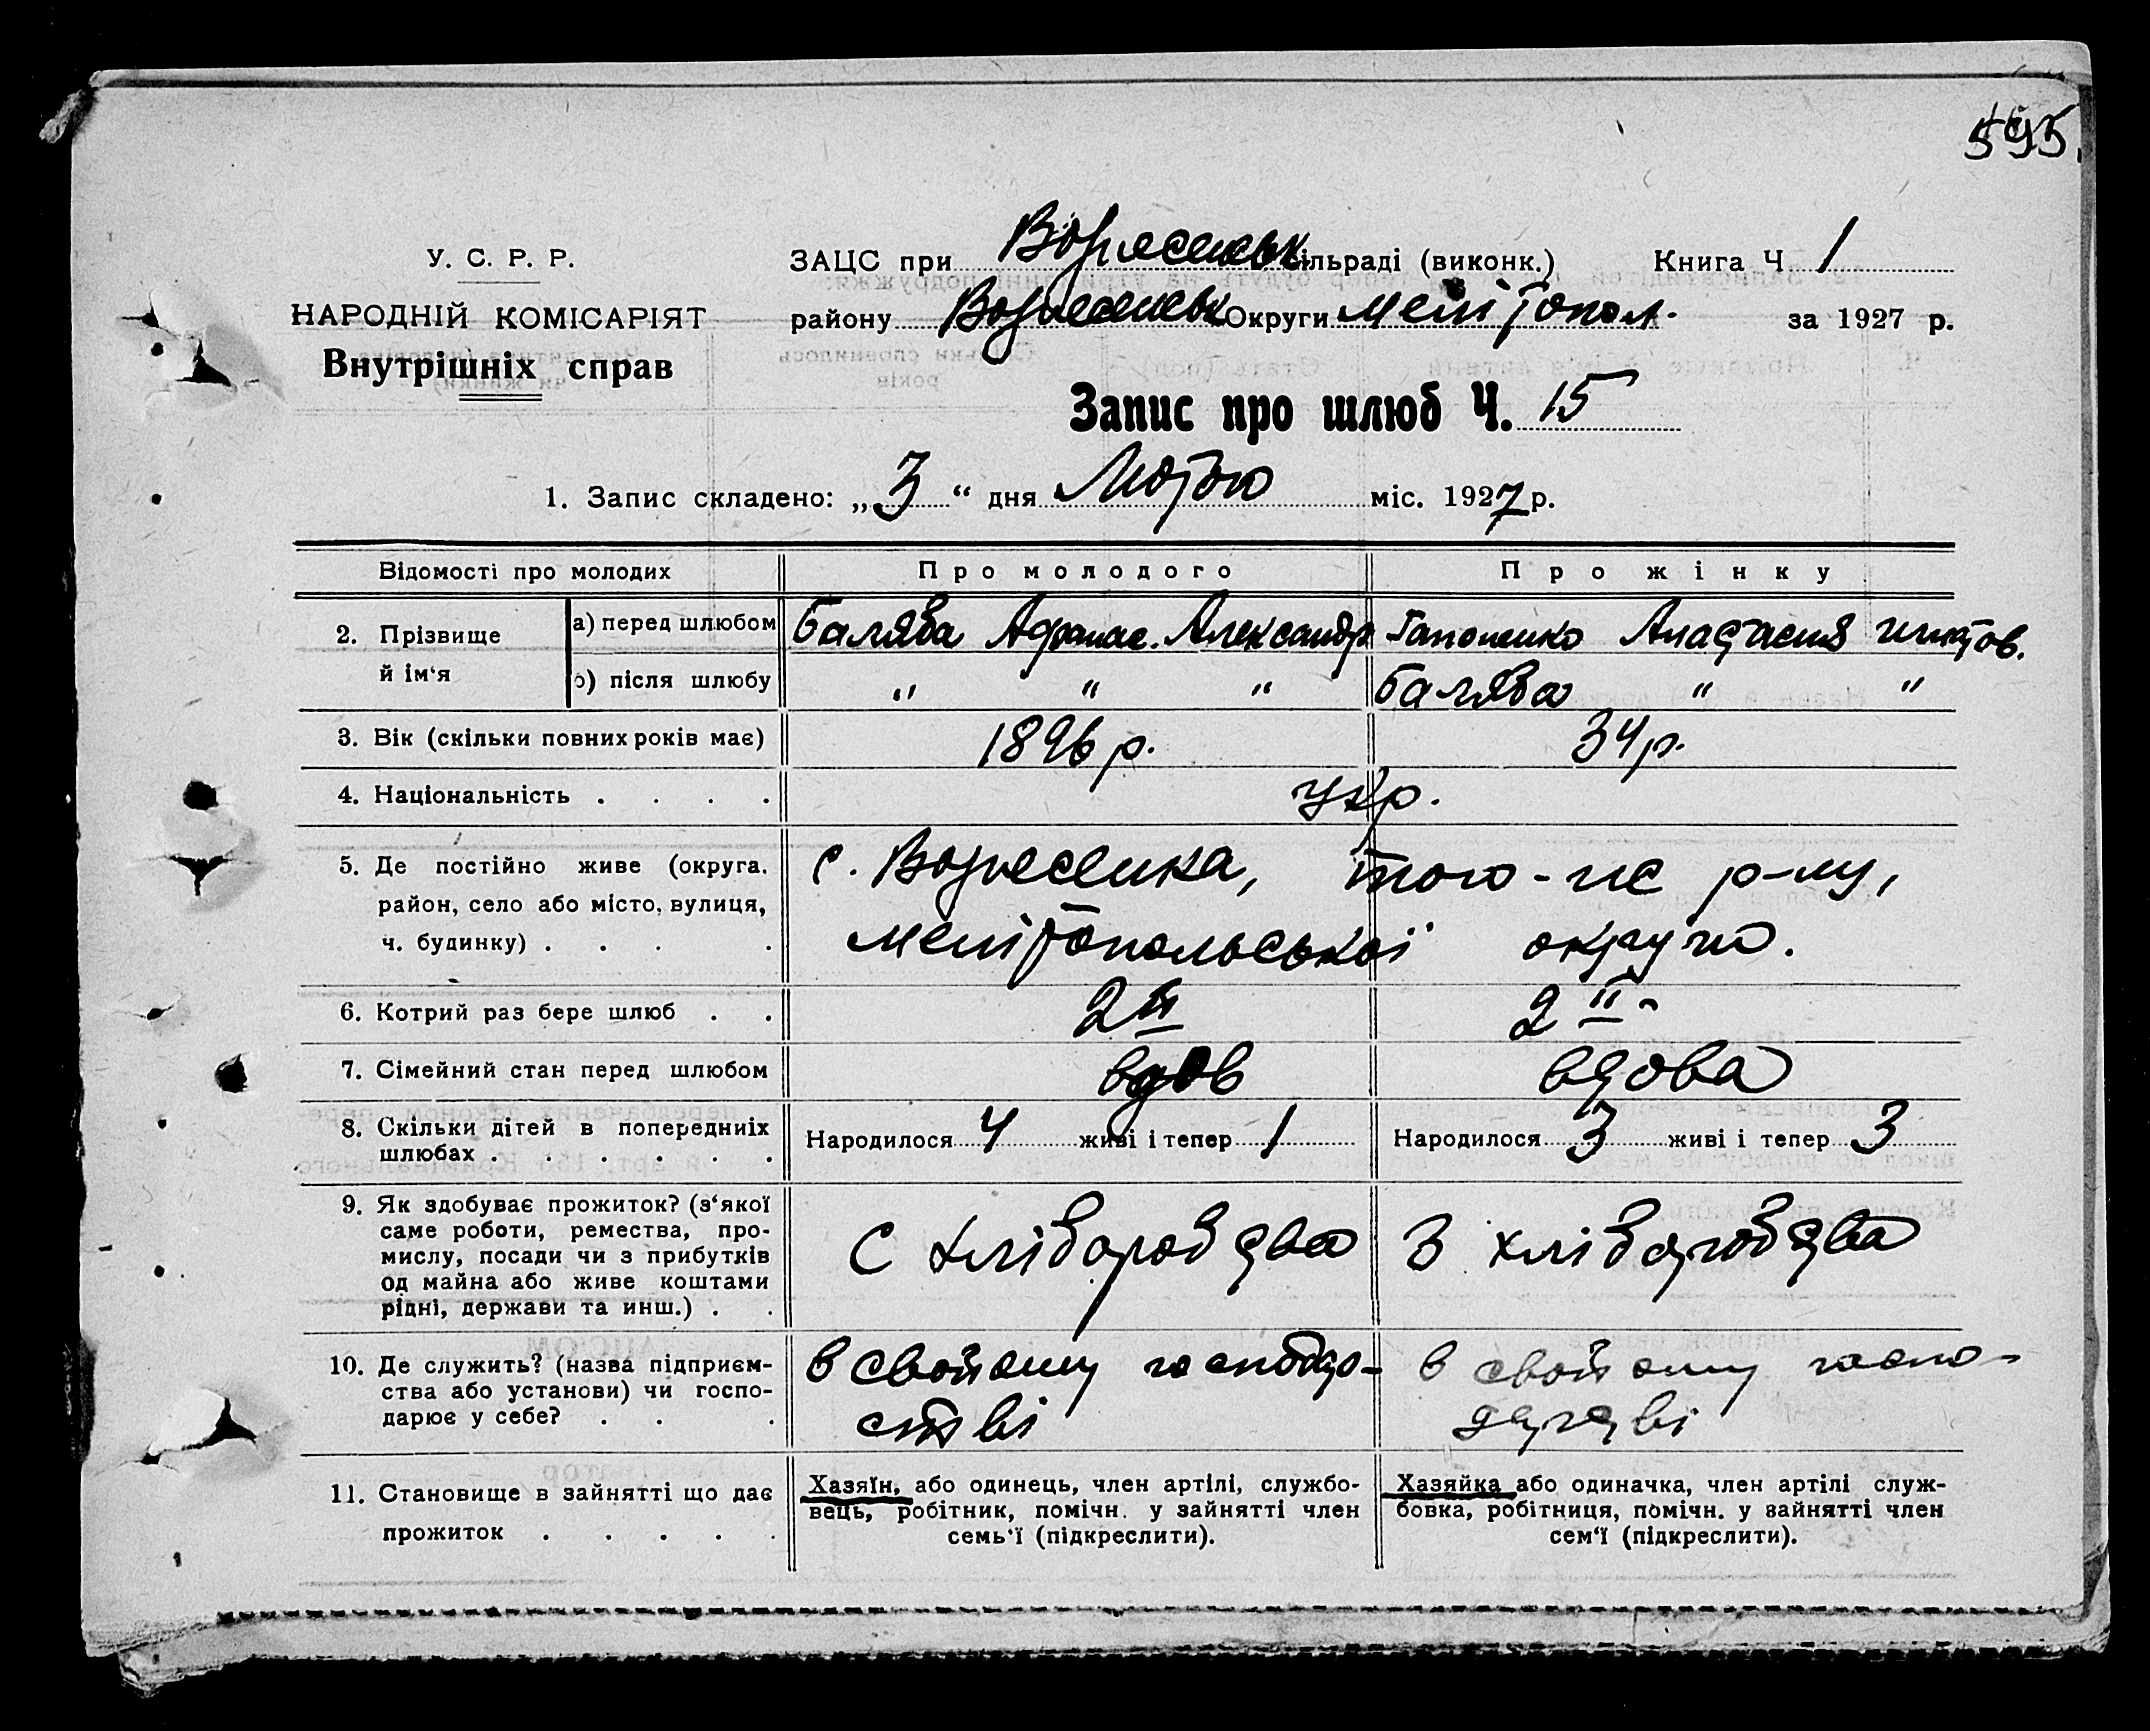 595.
У. С. Р. Р.
НАРОДНІЙ КОМІСАРІЯТ
Внутрішніх справ
ЗАЦС при Вознесенськ сільраді (виконк.) Книга Ч 1
району Вознесенськ Округи Мелітопол. за 1927 р.
Запис про шлюб Ч. 15
1. Запис складено: „3“ дня Лютого міс. 1927 р.
Відомості про молодих Про молодого Про жінку
2. Прізвище й ім‘я
а) перед шлюбом Балява Афанас. Александр Гапоненко Анастасия
б) після шлюбу " " " Балява " "
3. Вік (скільки повних років має) 1896 р. 34 р.
4. Національність . . . . укр.
5. Де постійно живе (округа, с. Вознесенка, того-же р-ну,
район, село або місто, вулиця, Мелітопольської округи.
ч. будинку) . . . .
6. Котрий раз бере шлюб . . 2 й 2 й
7. Сімейний стан перед шлюбом вдов вдова
8. Скільки дітей в попередниіх Народилося 4 живі і тепер 1 Народилося 3 живі і тепер 3
шлюбах . . . . . .
9. Як здобуває прожиток? (з‘якої
саме роботи, ремества, про-
мислу, посади чи з прибутків С хлібороб З хлібороб
од майна або живе коштами
рідні, держави та инш.) . .
10. Де служить? (назва підприєм- в свойому господар- в свойому госпо-
ства або установи) чи госпо- стві дарстві
дарює у себе? . . .
11. Становище в зайнятті що дає
прожиток . . . . .
Хазяїн, або одинець, член артілі, службо-
вець, робітник, помічн. у зайнятті член
семь‘ї (підкреслити).
Хазяйка або одиначка, член артілі служ-
бовка, робітниця, помічн. у зайнятті член
сем‘ї (підкреслити).